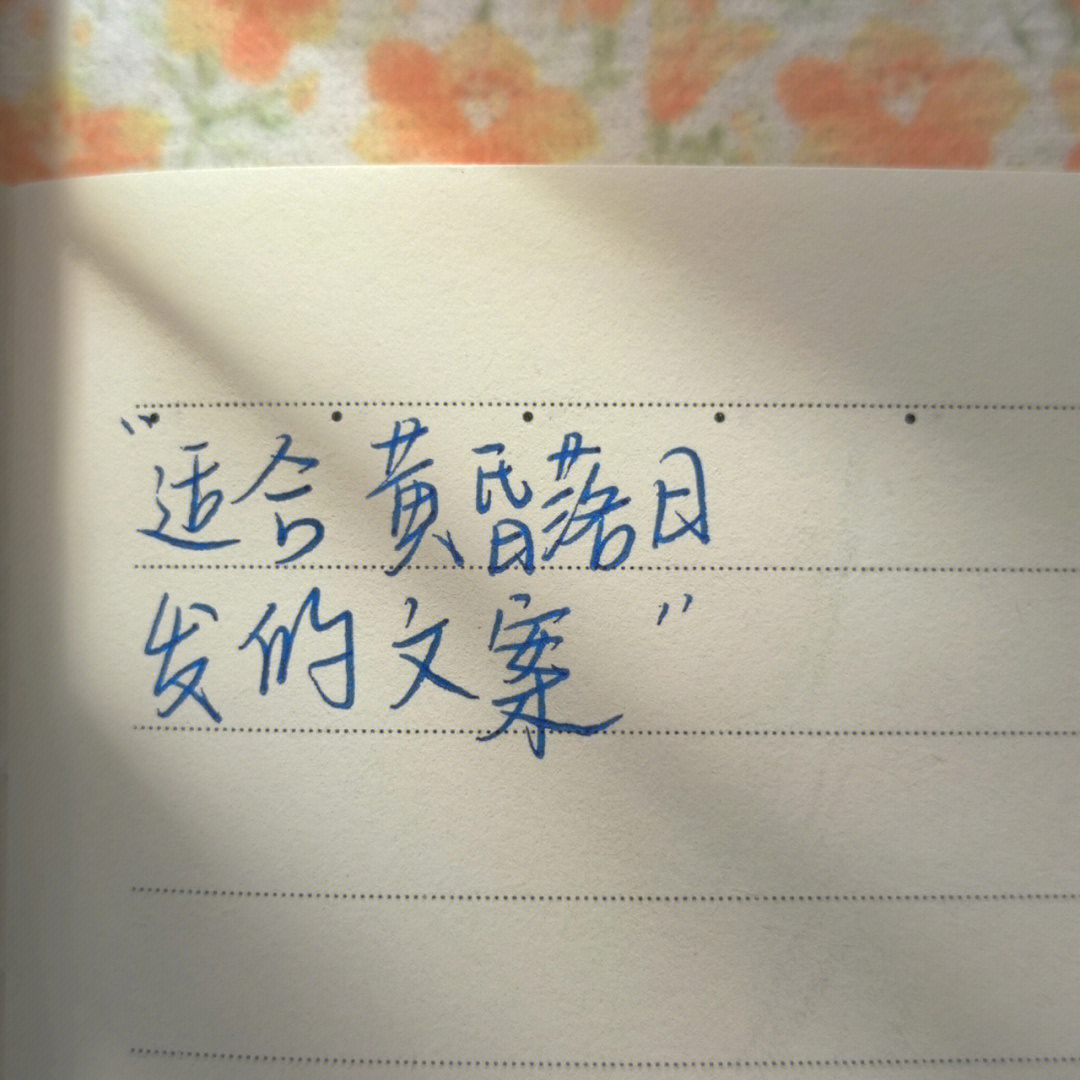 “适合黄昏落日
发的文案”